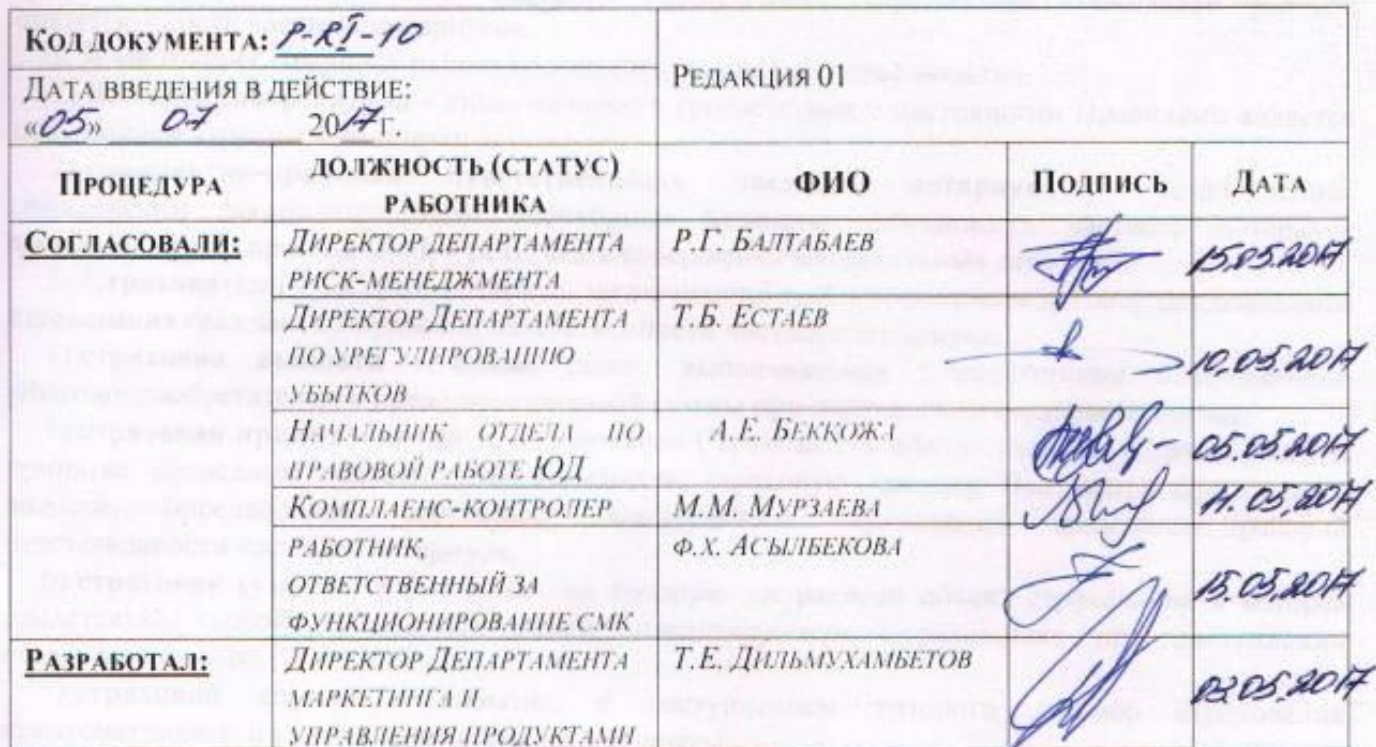 КОД ДОКУМЕНТА: P-RI-10
ДАТА ВВЕДЕНИЯ В ДЕЙСТВИЕ:
«05» 07 2017 г.
РЕДАКЦИЯ 01
ПРОЦЕДУРА
ДОЛЖНОСТЬ (СТАТУС)
РАБОТНИКА
ФИО
ПОДПИСЬ
ДАТА
СОГЛАСОВАЛИ:
ДИРЕКТОР ДЕПАРТАМЕНТА
РИСК-МЕНЕДЖМЕНТА
Р.Г. БАЛТАБАЕВ
15.05.2017
ДИРЕКТОР ДЕПАРТАМЕНТА
ПО УРЕГУЛИРОВАНИЮ
УБЫТКОВ
Т.Б. ЕСТАЕВ
10.05.2017
НАЧАЛЬНИК ОТДЕЛА ПО
ПРАВОВОЙ РАБОТЕ ЮД
А.Е. БЕККОЖА
05.05.2017
КОМПЛАЕНС-КОНТРОЛЕР
М.М. МУРЗАЕВА
11.05.2017
РАБОТНИК,
ОТВЕТСТВЕННЫЙ ЗА
ФУНКЦИОНИРОВАНИЕ СМК
Ф.Х. АСЫЛБЕКОВА
15.05.2017
РАЗРАБОТАЛ:
ДИРЕКТОР ДЕПАРТАМЕНТА
МАРКЕТИНГА И
УПРАВЛЕНИЯ ПРОДУКТАМИ
Т.Е. ДИЛЬМУХАМБЕТОВ
03.05.2017